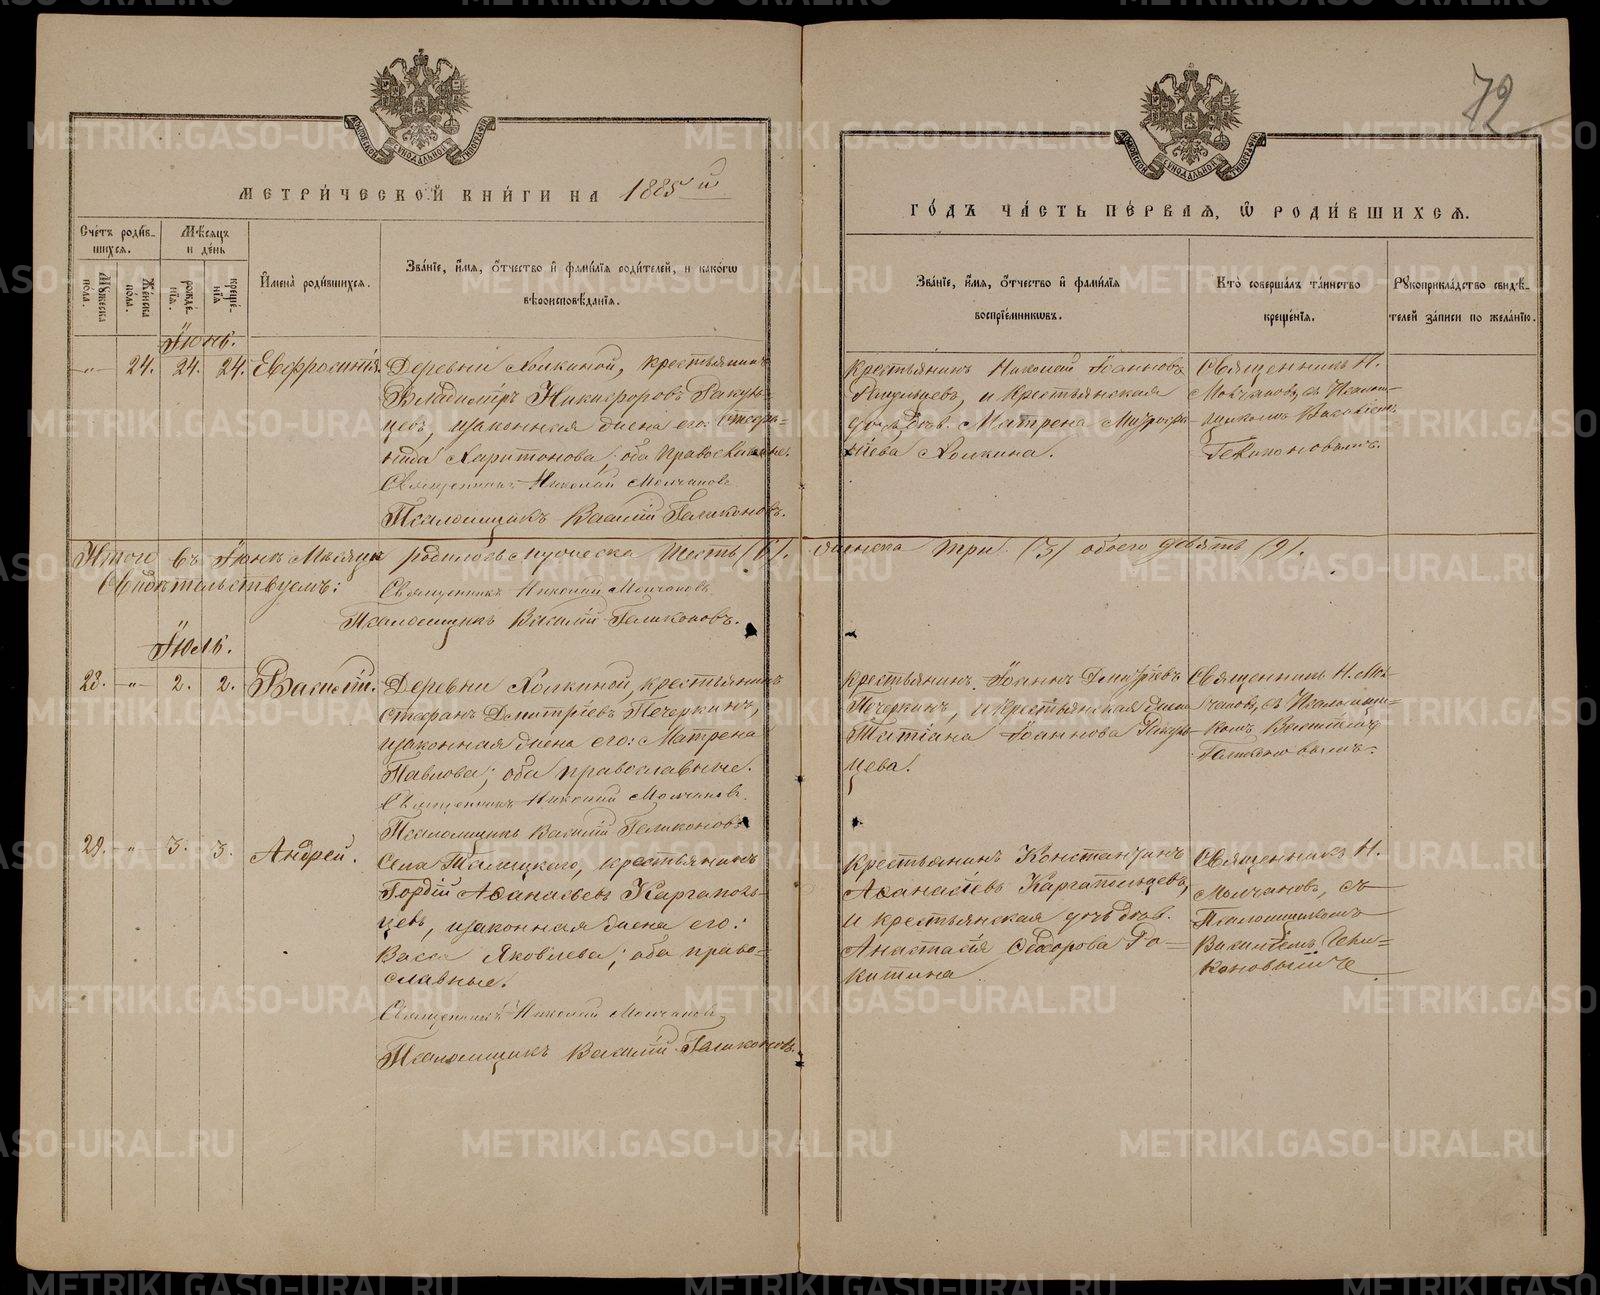 72
МОСКОВСКОЙ СѴНОДАЛЬНОЙ ТИПОГРАФІИ
МОСКОВСКОЙ СѴНОДАЛЬНОЙ ТИПОГРАФІИ
МЕТРИ́ЧЕСКОЙ КНИ́ГИ НА 1885 й
ГО́ДЪ ЧА́СТЬ ПЕ́РВАѦ, Ѽ РОДИ́ВШИХСѦ.
Сче́тъ роди́в-
шихся.
Мѣ́сяцъ
и де́нь
Мꙋжеска по́ла.
Же́нска по́ла.
рожде́нїя.
креще́нїя
И҆мена̀ роди́вшихся.
Зва́нїе, и҆́мя, ѻ҆́тчество и҆ фами́лїя роди́телей, и како́гѡ
вѣроисповѣ́данїя.
Зва́нїе, и҆́мя, ѻ҆́тчество и҆ фами́лїя
воспрїе́мникѡвъ.
Кто̀ соверша́лъ та́инство
креще́нїя.
Рꙋкоприкла́дство свидѣ́-
телей за́писи по жела́нїю.
Іюнь.
-"- 24. 24. 24. Евфросинія.
Деревни Холкиной, крестьянинъ
Владиміръ Никифоровъ Ракуль-
цевъ, законная жена его: Стефа-
нида Харитонова, оба православные.
Священникъ Николай Молчановъ
Псаломщикъ Василій Геликоновъ.
Крестьянинъ Николай Іоанновъ
Ракульцевъ, и крестьянская
дочь дѣв. Матрона Митрофа-
ніева Холкина.
Священникъ Н.
Молчановъ, съ Псалом-
щикомъ Василіемъ
Геликоновымъ.
Итого въ Іюнѣ мѣсяцѣ родилось мужеска шесть (6). женска три (3) обоего девять (9).
Свидѣтельствуемъ: Священникъ Николай Молчановъ
Псаломщикъ Василій Геликоновъ.
Іюль.
28. -"- 2. 2. Василій.
Деревни Холкиной, крестьянинъ
Стефанъ Димитріевъ Печеркинъ,
законная жена его: Матрена
Павлова; оба православные.
Священникъ Николай Молчановъ.
Псаломщикъ Василій Геликоновъ
Крестьянинъ Іоаннъ Димитріевъ
Печеркинъ, и крестьянская жена
Татіана Іоаннова Ракуль-
цева.
Священникъ Н. Мол-
чановъ, съ Псаломщи-
комъ Василіемъ
Геликоновымъ.
29. " 3. 3. Андрей.
Села Талицкаго, крестьянинъ
Гордій Аѳанасьевъ Каргаполь-
цевъ, законная жена его:
Васса Яковлева; оба право-
славные.
Священникъ Николай Молчановъ
Псаломщикъ Василій Геликоновъ.
Крестьянинъ Константинъ
Аѳанасіевъ Каргапольцевъ,
и крестьянская дочь дѣв.
Анастасія Ѳеодорова Ра-
китина
Священникъ Н.
Молчановъ, съ
Псаломщикомъ
Василіемъ Гели-
коновымъ
METRIKI.GASO-URAL.RU